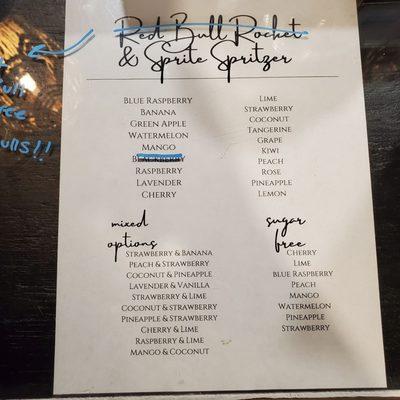 Red Bull Rocket
& Sprite Spritzer
Blue Raspberry
Banana
Green Apple
Watermelon
Mango
Blackberry
Raspberry
Lavender
Cherry
Lime
Strawberry
Coconut
Tangerine
Grape
Kiwi
Peach
Rose
Pineapple
Lemon
mixed
options
Strawberry & Banana
Peach & Strawberry
Coconut & Pineapple
Lavender & Vanilla
Strawberry & Lime
Coconut & Strawberry
Pineapple & Strawberry
Cherry & Lime
Raspberry & Lime
Mango & Coconut
sugar
free
Cherry
Lime
Blue Raspberry
Peach
Mango
Watermelon
Pineapple
Strawberry